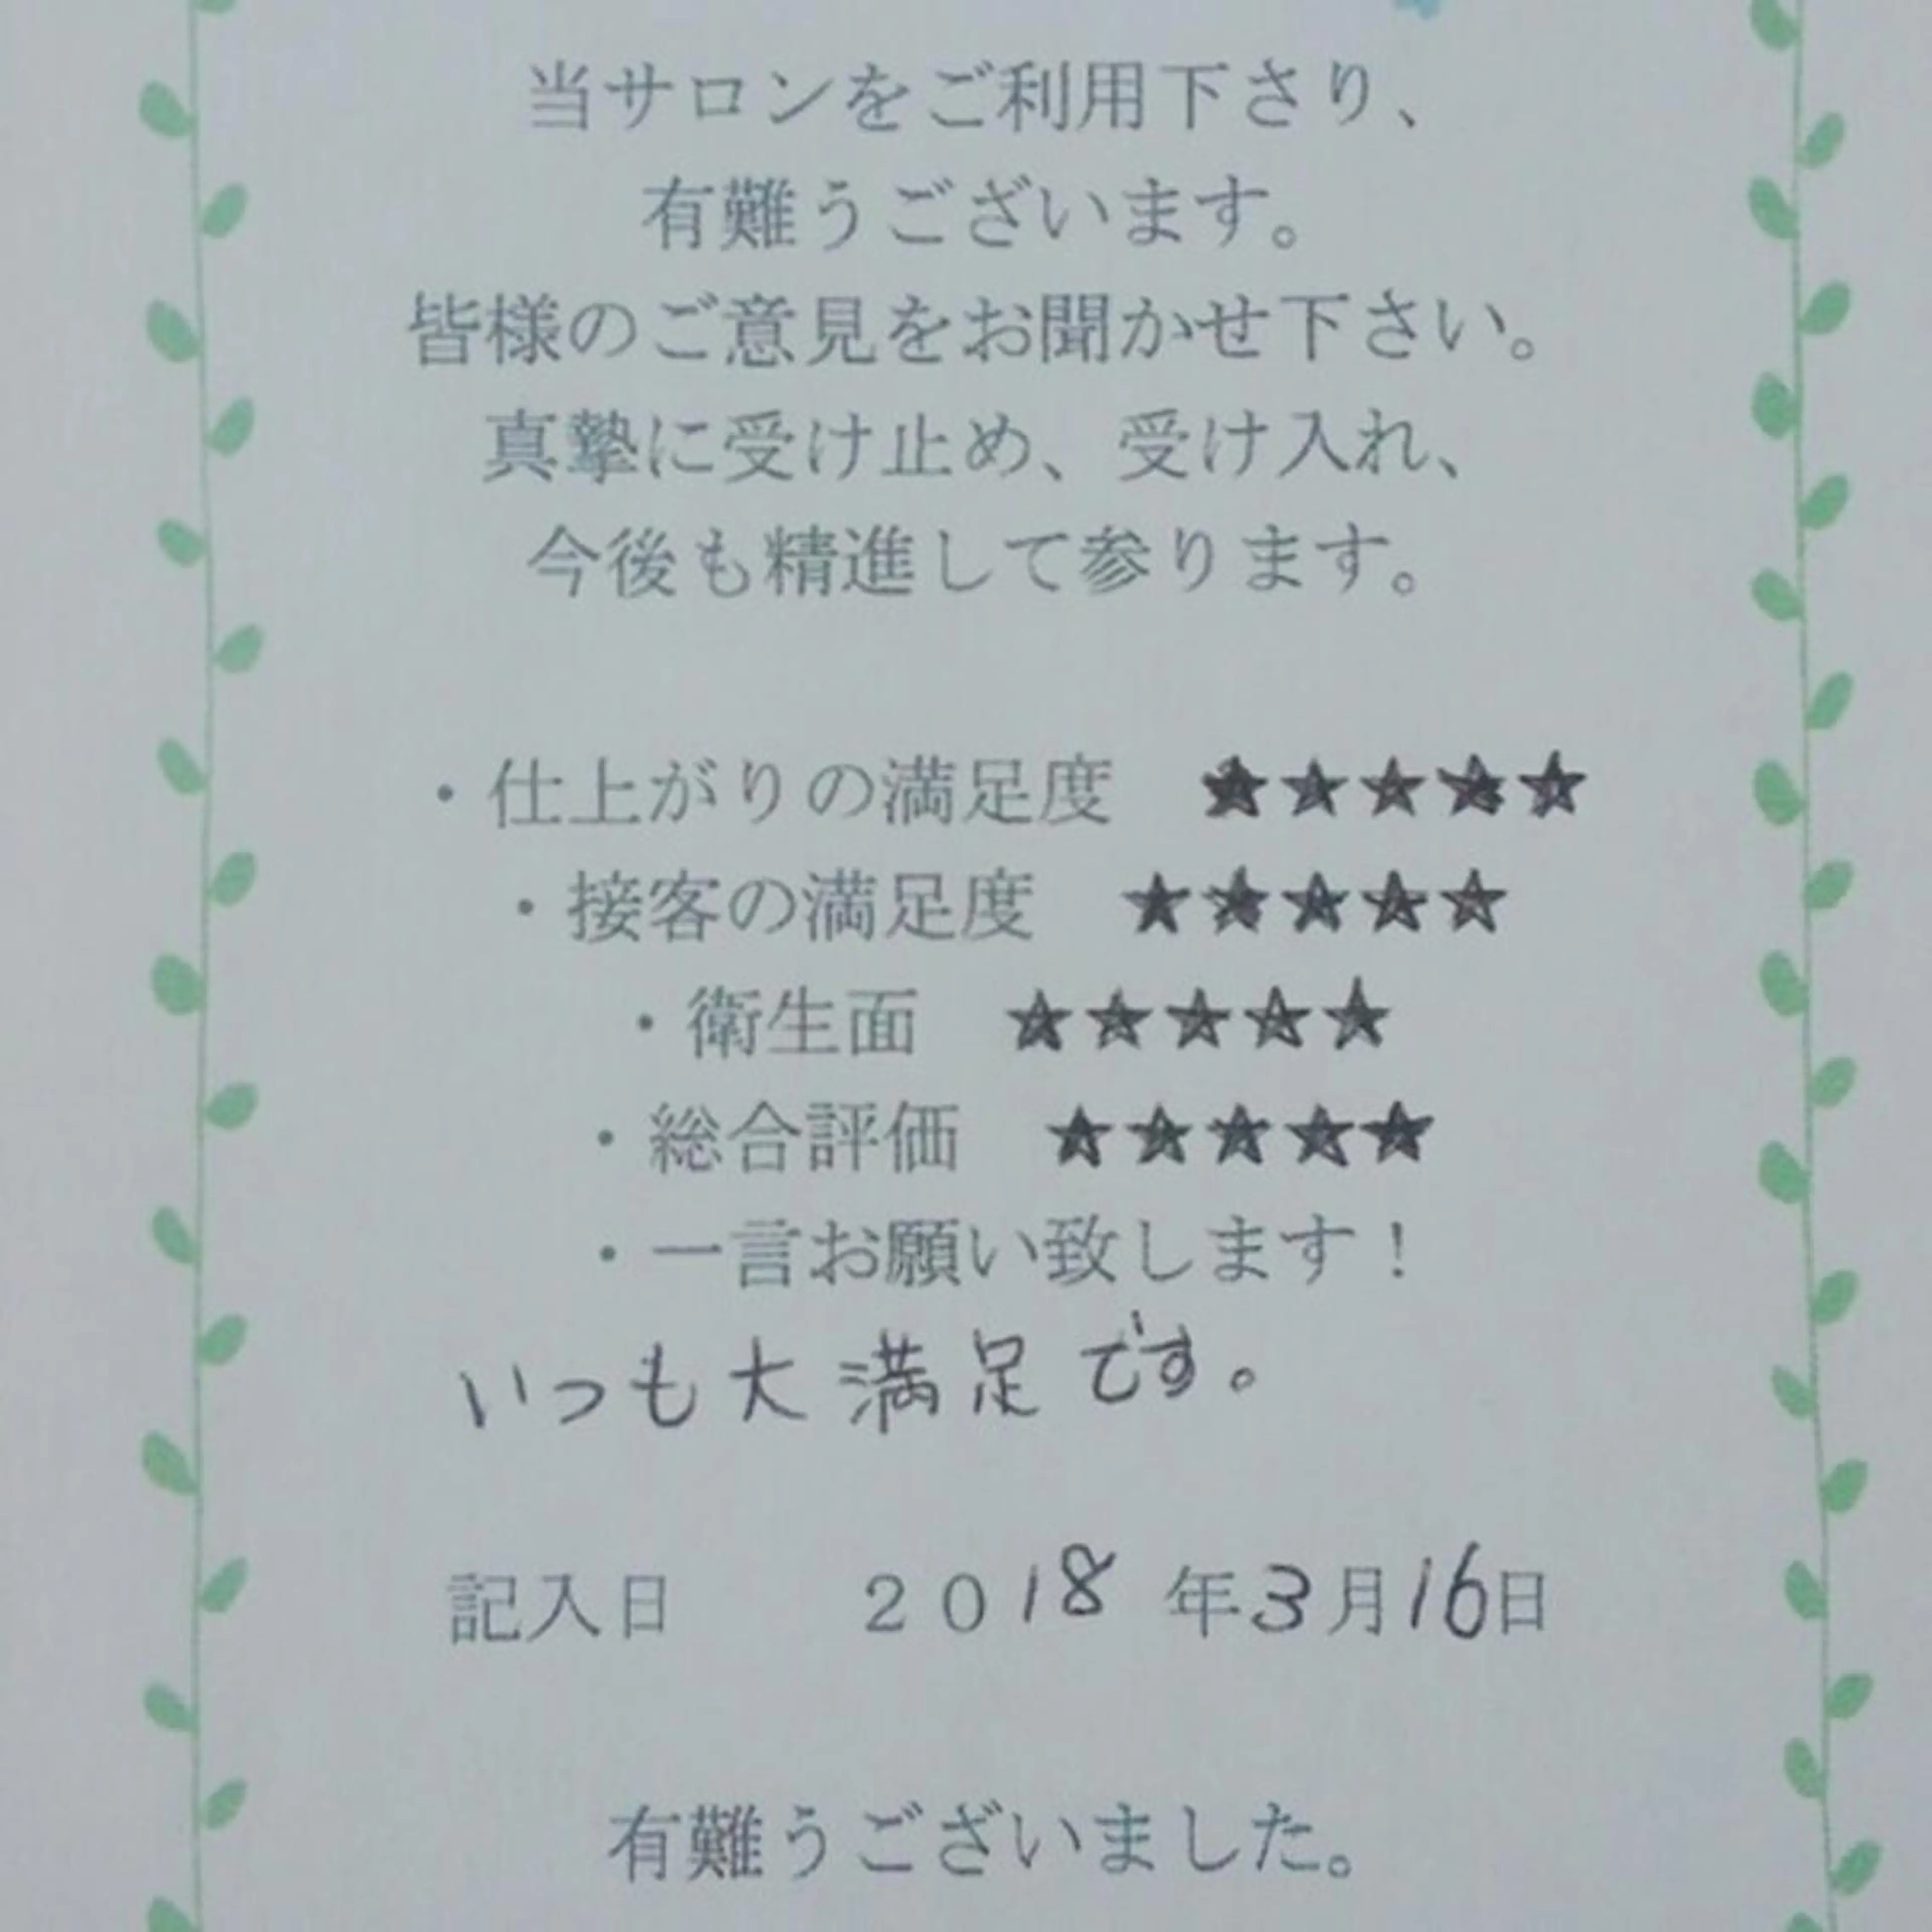 当サロンをご利用下さり、
有難うございます。
皆様のご意見をお聞かせ下さい。
真摯に受け止め、受け入れ、
今後も精進して参ります。
・仕上がりの満足度　★★★★★
・接客の満足度　★★★★★
・衛生面　★★★★★
・総合評価　★★★★★
・一言お願い致します！
いつも大満足です。
記入日　２０18年3月16日
有難うございました。